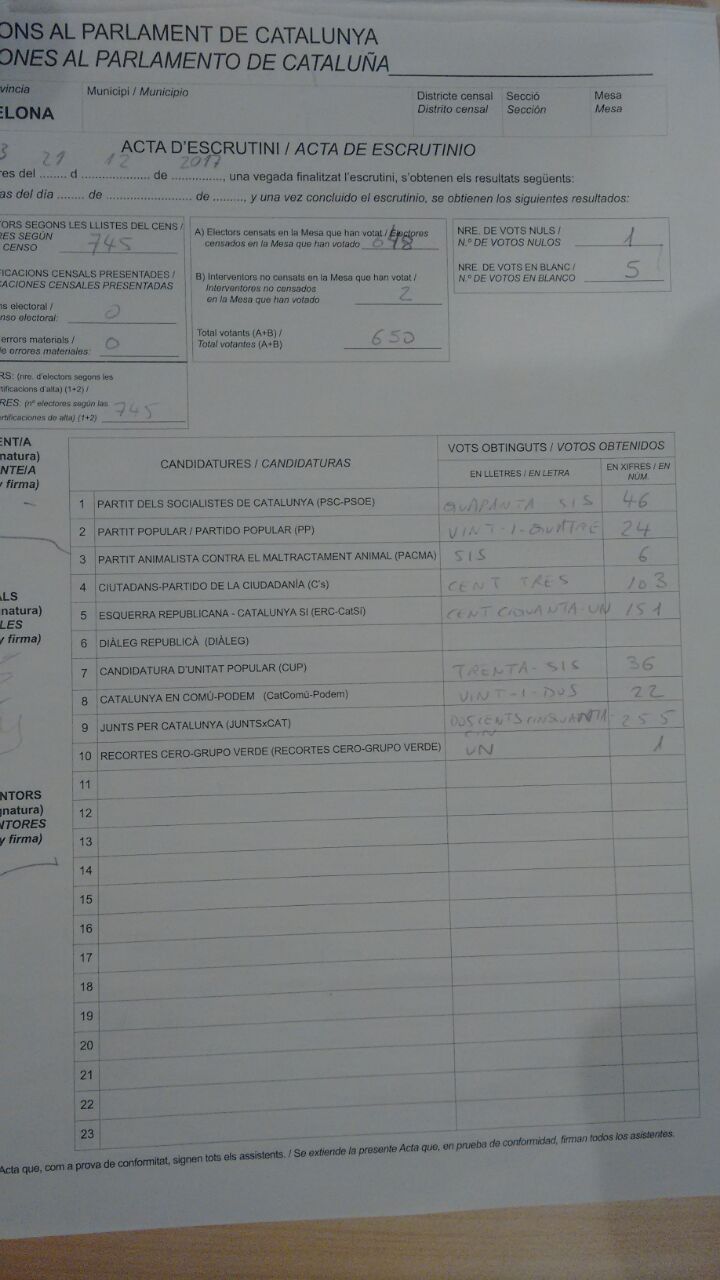 ONS AL PARLAMENT DE CATALUNYA
ONES AL PARLAMENTO DE CATALUÑA
víncia
ELONA
Municipi / Municipio
Districte censal
Distrito censal
Secció
Sección
Mesa
Mesa
ACTA D'ESCRUTINI / ACTA DE ESCRUTINIO
3 21 12 2017
res del ........ d ...................... de ................, una vegada finalitzat l'escrutini, s'obtenen els resultats següents:
as del día ....... de ............................ de .........., y una vez concluido el escrutinio, se obtienen los siguientes resultados:
TORS SEGONS LES LLISTES DEL CENS /
RES SEGÚN
CENSO 745
FICACIONS CENSALS PRESENTADES /
CACIONES CENSALES PRESENTADAS
ns electoral /
nso electoral: 0
errors materials /
de errores materiales: 0
RS: (nre. d'electors segons les
tificacions d'alta) (1+2) /
RES. (nº electores según las
ertificaciones de alta) (1+2) 745
A) Electors censats en la Mesa que han votat / Electores
censados en la Mesa que han votado 648
B) Interventors no censats en la Mesa que han votat /
Interventores no censados
en la Mesa que han votado 2
Total votants (A+B) /
Total votantes (A+B) 650
NRE. DE VOTS NULS /
N.º DE VOTOS NULOS 1
NRE. DE VOTS EN BLANC /
N.º DE VOTOS EN BLANCO 5
ENT/A
natura)
NTE/A
y firma)
ALS
gnatura)
LES
y firma)
NTORS
gnatura)
NTORES
y firma)
CANDIDATURES / CANDIDATURAS
VOTS OBTINGUTS / VOTOS OBTENIDOS
EN LLETRES / EN LETRA
EN XIFRES / EN
NÚM.
1 PARTIT DELS SOCIALISTES DE CATALUNYA (PSC-PSOE) QUARANTA SIS 46
2 PARTIT POPULAR / PARTIDO POPULAR (PP) VINT-I-QUATRE 24
3 PARTIT ANIMALISTA CONTRA EL MALTRACTAMENT ANIMAL (PACMA) SIS 6
4 CIUTADANS-PARTIDO DE LA CIUDADANÍA (C's) CENT TRES 103
5 ESQUERRA REPUBLICANA - CATALUNYA SÍ (ERC-CatSí) 151
6 DIÀLEG REPUBLICÀ (DIÀLEG)
7 CANDIDATURA D'UNITAT POPULAR (CUP) TRENTA-SIS 36
8 CATALUNYA EN COMÚ-PODEM (CatComú-Podem) VINT-I-DOS 22
9 JUNTS PER CATALUNYA (JUNTSxCAT) 255
10 RECORTES CERO-GRUPO VERDE (RECORTES CERO-GRUPO VERDE) UN 1
11
12
13
14
15
16
17
18
19
20
21
22
23
Acta que, com a prova de conformitat, signen tots els assistents. / Se extiende la presente Acta que, en prueba de conformidad, firman todos los asistentes.